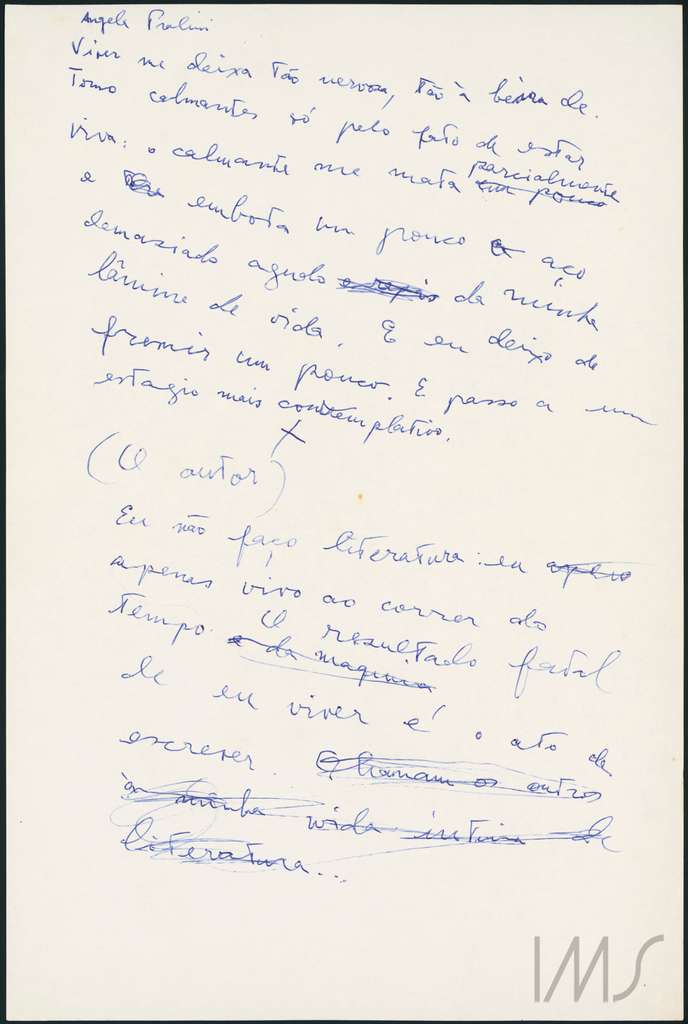 Angela Pralini
Viver me deixa tão nervosa, tão à beira de.
Tomo calmantes só pelo fato de estar
viva: o calmante me mata parcialmente
um pouco
e embota um pouco o aço
demasiado agudo da minha
lâmina de vida. E eu deixo de
fremir um pouco. E passo a um
estagio mais contemplativo.
(O autor)
Eu não faço literatura: eu
apenas vivo ao correr do
tempo. O resultado fatal
e da maquina
de eu viver é o ato de
escrever. Chamam os outros
à minha vida íntima de
literatura...
IMS